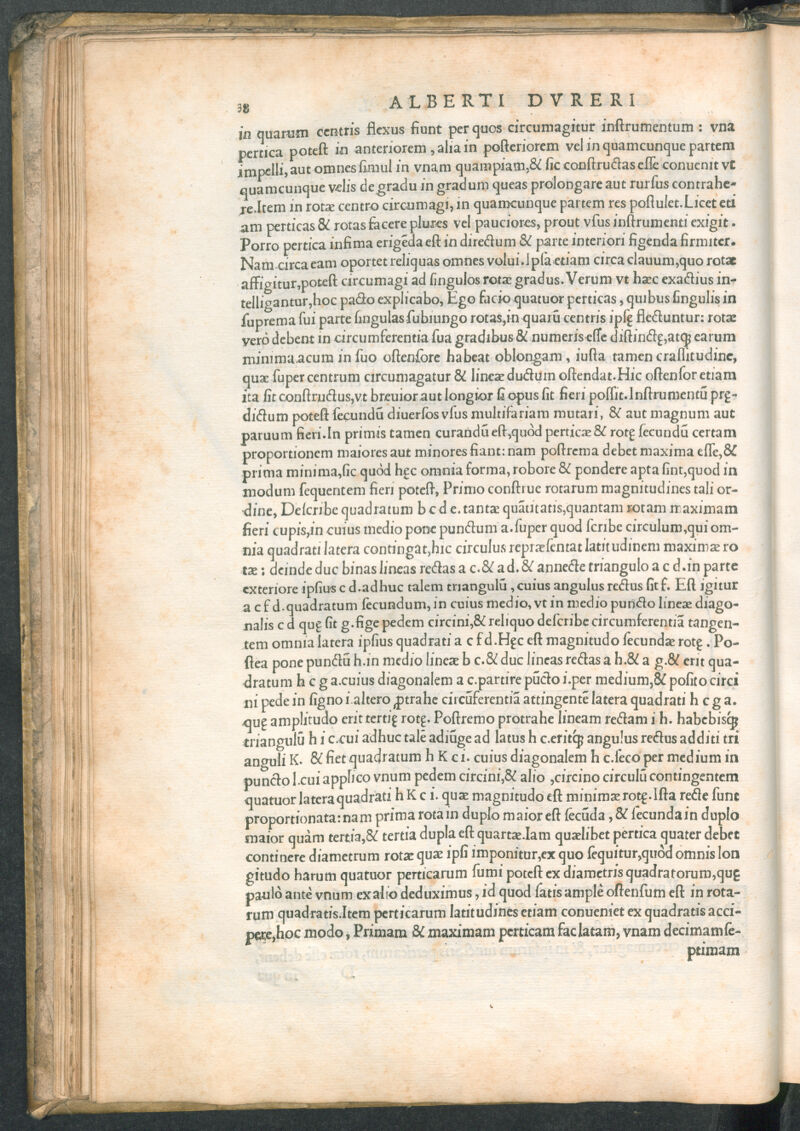 38
ALBERTI DVRERI
in quarum centris flexus fiunt per quos circumagitur inſtrumentum : vna
pertica poteſt in anteriorem , alia in poſteriorem vel in quamcunque partem
impelli, aut omnes ſimul in vnam quampiam,& ſic conſtructas eſſe conuenit vt
quamcunque velis de gradu in gradum queas prolongare aut rurſus contrahe-
re.Item in rotæ centro circumagi, in quamcunque partem res poſtulet.Licet eti
am perticas & rotas facere plures vel pauciores, prout vſus inſtrumenti exigit .
Porro pertica infima erigēda eſt in directum & parte interiori figenda firmiter.
Nam circa eam oportet reliquas omnes volui.Ipſa etiam circa clauum,quo rotæ
affigitur,poteſt circumagi ad ſingulos rotæ gradus.Verum vt hæc exactius in-
telligantur,hoc pacto explicabo, Ego facio quatuor perticas , quibus ſingulis in
ſuprema ſui parte ſingulas ſubiungo rotas,in quarū centris ipſę flectuntur: rotæ
verò debent in circumferentia ſua gradibus & numeris eſſe diſtinctę,atq; earum
minima acum in ſuo oſtenſore habeat oblongam , iuſta tamen craſſitudine,
quæ ſuper centrum circumagatur & lineæ ductum oſtendat.Hic oſtenſor etiam
ita ſit conſtructus,vt breuior aut longior ſi opus ſit fieri poſſit.Inſtrumentū prę-
dictum poteſt ſecundū diuerſos vſus multifariam mutari, & aut magnum aut
paruum fieri.In primis tamen curandū eſt,quòd perticæ & rotę ſecundū certam
proportionem maiores aut minores fiant: nam poſtrema debet maxima eſſe,&
prima minima,ſic quòd hęc omnia forma, robore & pondere apta ſint,quod in
modum ſequentem fieri poteſt, Primo conſtrue rotarum magnitudines tali or-
dine, Deſcribe quadratum b c d e. tantæ quātitatis,quantam rotam maximam
fieri cupis,in cuius medio pone punctum a.ſuper quod ſcribe circulum,qui om-
nia quadrati latera contingat,hic circulus repræſentat latitudinem maximæ ro
tæ : deinde duc binas lineas rectas a c.& a d.& annecte triangulo a c d.in parte
exteriore ipſius c d.adhuc talem triangulū , cuius angulus rectus ſit f. Eſt igitur
a c f d.quadratum ſecundum, in cuius medio, vt in medio puncto lineæ diago-
nalis c d quę ſit g.fige pedem circini,& reliquo deſcribe circumferentiā tangen-
tem omnia latera ipſius quadrati a c f d.Hęc eſt magnitudo ſecundæ rotę . Po-
ſtea pone punctū h.in medio lineæ b c.& duc lineas rectas a h.& a g.& erit qua-
dratum h c g a.cuius diagonalem a c.partire pūcto i.per medium,& poſito circi
ni pede in ſigno i.altero ꝓtrahe circūferentiā attingentē latera quadrati h c g a.
quę amplitudo erit tertię rotę. Poſtremo protrahe lineam rectam i h. habebisq;
triangulū h i c.cui adhuc tale adiūge ad latus h c.eritq; angulus rectus additi tri
anguli K. & fiet quadratum h K c i. cuius diagonalem h c.ſeco per medium in
puncto l.cui applico vnum pedem circini,& alio ,circino circulū contingentem
quatuor latera quadrati h K c i. quæ magnitudo eſt minimæ rotę.Iſta recte ſunt
proportionata:nam prima rota in duplo maior eſt ſecūda , & ſecunda in duplo
maior quàm tertia,& tertia dupla eſt quartæ.Iam quælibet pertica quater debet
continere diametrum rotæ quæ ipſi imponitur,ex quo ſequitur,quòd omnis lon
gitudo harum quatuor perticarum ſumi poteſt ex diametris quadratorum,quę
paulò antè vnum ex alio deduximus , id quod ſatis amplè oſtenſum eſt in rota-
rum quadratis.Item perticarum latitudines etiam conueniet ex quadratis acci-
pere,hoc modo, Primam & maximam perticam fac latam, vnam decimamſe-
ptimam